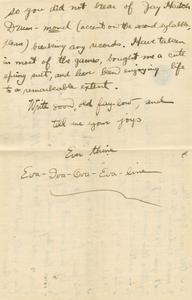 so you did not hear of Jay Hutch
Drum-mond (accent on the second syllable,
please) breaking any records. Have taken
in most of the games, bought me a cute
spring suit, and have been enjoying life
to a remarkable extent.
Write soon, old fay-low, and
tell me your joys
Ever thine
Eva-